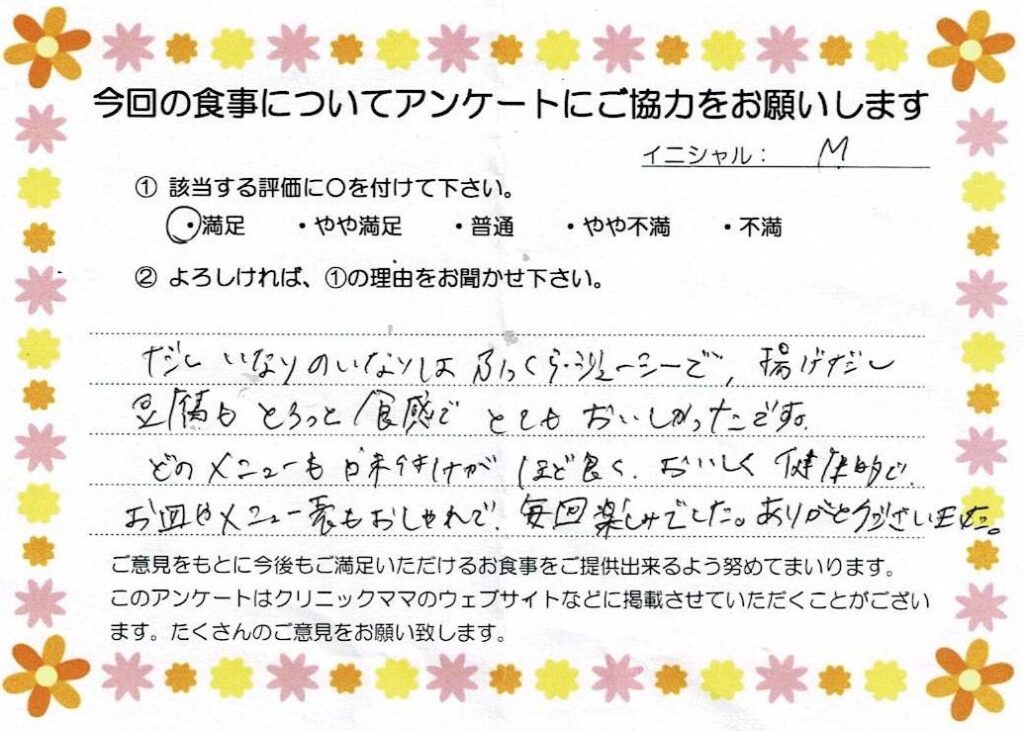 今回の食事についてアンケートにご協力をお願いします
イニシャル： M
① 該当する評価に〇を付けて下さい。
・満足 ・やや満足 ・普通 ・やや不満 ・不満
② よろしければ、①の理由をお聞かせ下さい。
だしいなりのいなりはふっくらジューシーで、揚げだし
豆腐もとろっと食感でとてもおいしかったです。
どのメニューも味付けがほど良く、おいしく健康的で、
お皿やメニュー表もおしゃれで、毎回楽しみでした。ありがとうございました。
ご意見をもとに今後もご満足いただけるお食事をご提供出来るよう努めてまいります。
このアンケートはクリニックママのウェブサイトなどに掲載させていただくことがござい
ます。たくさんのご意見をお願い致します。